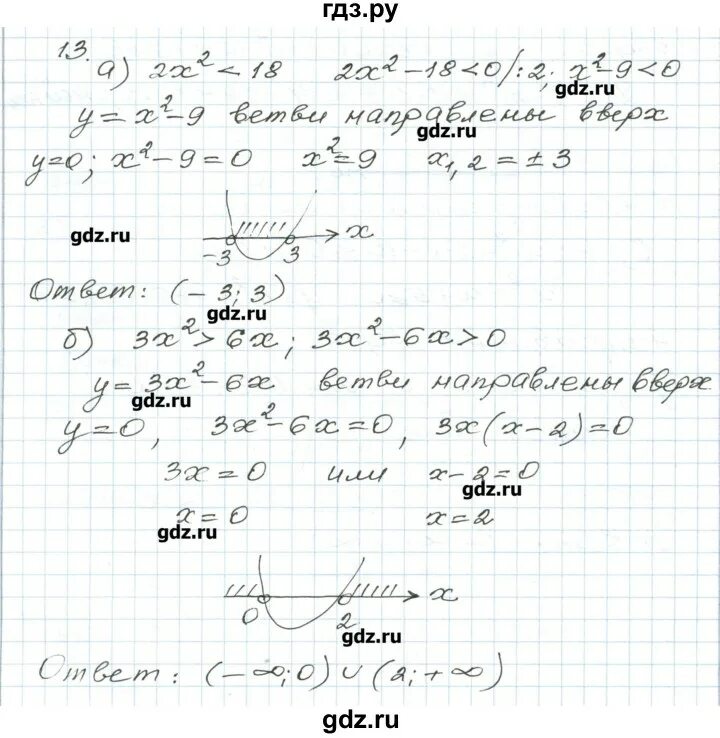 гдз.ру
13.
а) 2x² < 18   2x² − 18 < 0 /: 2; x² − 9 < 0
gdz.ru
y = x² − 9 ветви направлены вверх
gdz.ru
y = 0; x² − 9 = 0   x² = 9   x₁,₂ = ± 3
gdz.ru
x
−3   3
Ответ: (− 3; 3)
gdz.ru
б) 3x² > 6x; 3x² − 6x > 0
y = 3x² − 6x ветви направлены вверх
gdz.ru
y = 0, 3x² − 6x = 0, 3x(x − 2) = 0
3x = 0   или   x − 2 = 0
gdz.ru
x = 0   x = 2
gdz.ru
x
0   2
gdz.ru
Ответ: (− ∞; 0) ∪ (2; + ∞)
gdz.ru